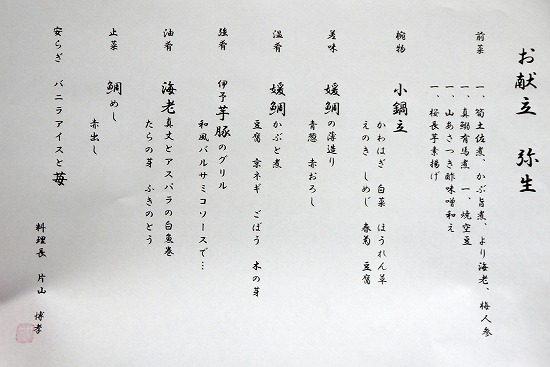 お献立 弥生
前菜
一、筍土佐煮、かぶ旨煮、より海老、梅人参
一、真鰯有馬煮 一、焼空豆
一、山あさつき酢味噌和え
一、桜長芋素揚げ
椀物 小鍋立
かわはぎ 白菜 ほうれん草
えのき しめじ 春菊 豆腐
美味 媛鯛の薄造り
青葱 赤おろし
温肴 媛鯛かぶと煮
豆腐 京ネギ ごぼう 木の芽
強肴 伊予芋豚のグリル
和風バルサミコソースで…
油肴 海老真丈とアスパラの白魚巻
たらの芽 ふきのとう
止菜 鯛めし
赤出し
安らぎ バニラアイスと苺
料理長 片山 博孝